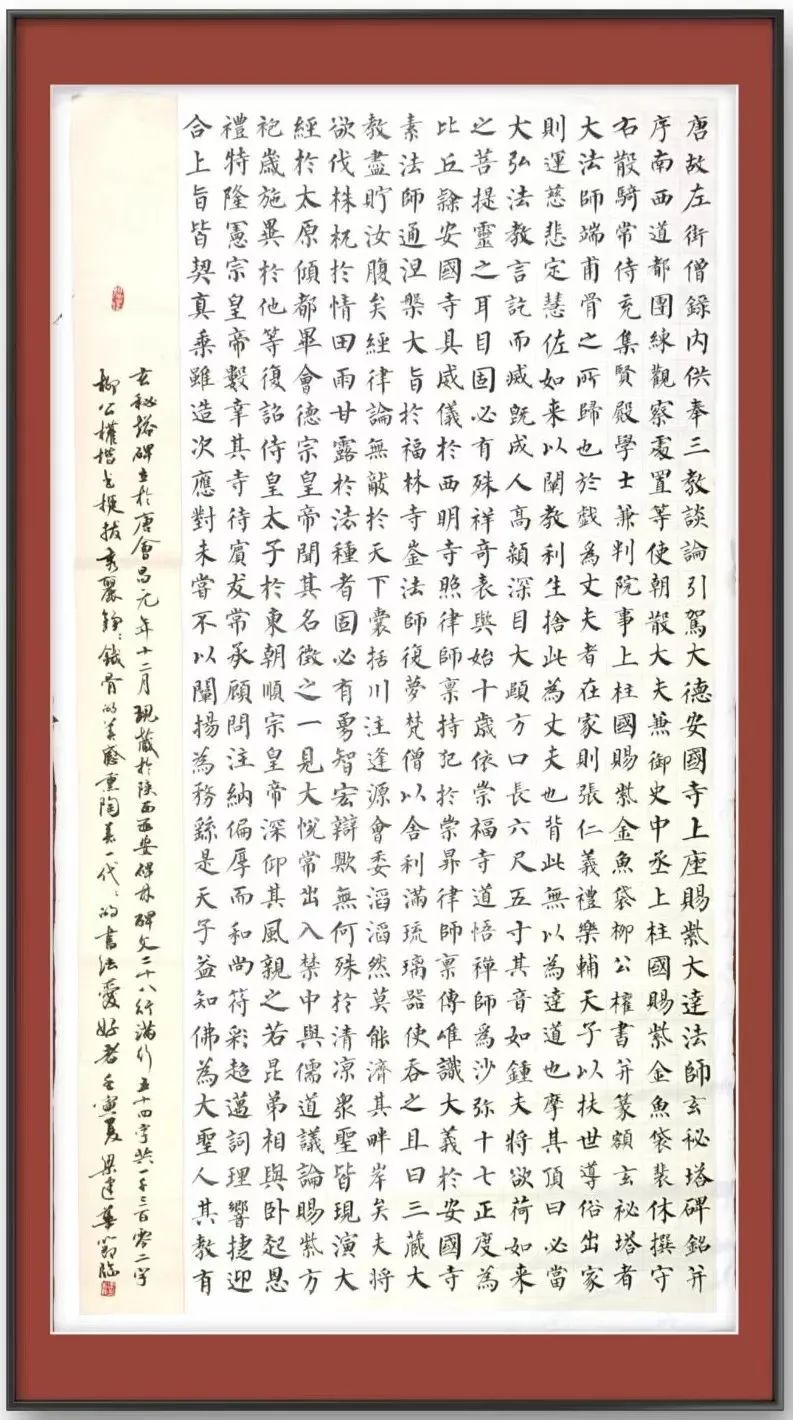 唐故左街僧錄內供奉三教談論引駕大德安國寺上座賜紫大達法師玄秘塔碑銘并
序南西道都團練觀察處置等使朝散大夫兼御史中丞上柱國賜紫金魚袋裴休撰守
右散騎常侍充集賢殿學士兼判院事上柱國賜紫金魚袋柳公權書并篆額玄秘塔者
大法師端甫骨之所歸也於戲為丈夫者在家則張仁義禮樂輔天子以扶世導俗出家
則運慈悲定慧佐如来以闡教利生捨此為丈夫也背此無以為達道也摩其頂曰必當
大弘法教言訖而滅既成人高顙深目大頤方口長六尺五寸其音如鍾夫將欲荷如来
之菩提靈之耳目固必有殊祥奇表與始十歲依崇福寺道悟禪師為沙弥十七正度為
比丘隸安國寺具威儀於西明寺照律師稟持犯於崇昇律師稟傳唯識大義於安國寺
素法師通涅槃大旨於福林寺崟法師復夢梵僧以舍利滿琉璃器使吞之且曰三藏大
教盡貯汝腹矣經律論無敵於天下囊括川注逢源會委滔滔然莫能濟其畔岸矣夫將
欲伐株杌於情田雨甘露於法種者固必有勇智宏辯歟無何殊於清凉衆聖皆現演大
經於太原傾都畢會德宗皇帝聞其名徵之一見大悅常出入禁中與儒道議論賜紫方
袍歲施異於他等復詔侍皇太子於東朝順宗皇帝深仰其風親之若昆弟相與卧起恩
禮特隆憲宗皇帝數幸其寺待賓友常承顧問注納偏厚而和尚符彩超邁詞理響捷迎
合上旨皆契真乘雖造次應對未嘗不以闡揚為務繇是天子益知佛為大聖人其教有
玄秘塔碑立於唐會昌元年十二月現藏於陝西西安碑林碑文二十八行滿行五十四字共一千三百零二字
柳公權楷書挺拔秀麗錚錚鐵骨的美感熏陶着一代代的書法愛好者壬寅夏梁建華節臨